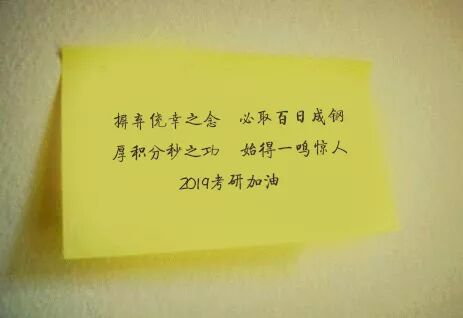 摒弃侥幸之念 必取百日成钢
厚积分秒之功 始得一鸣惊人
2019考研加油